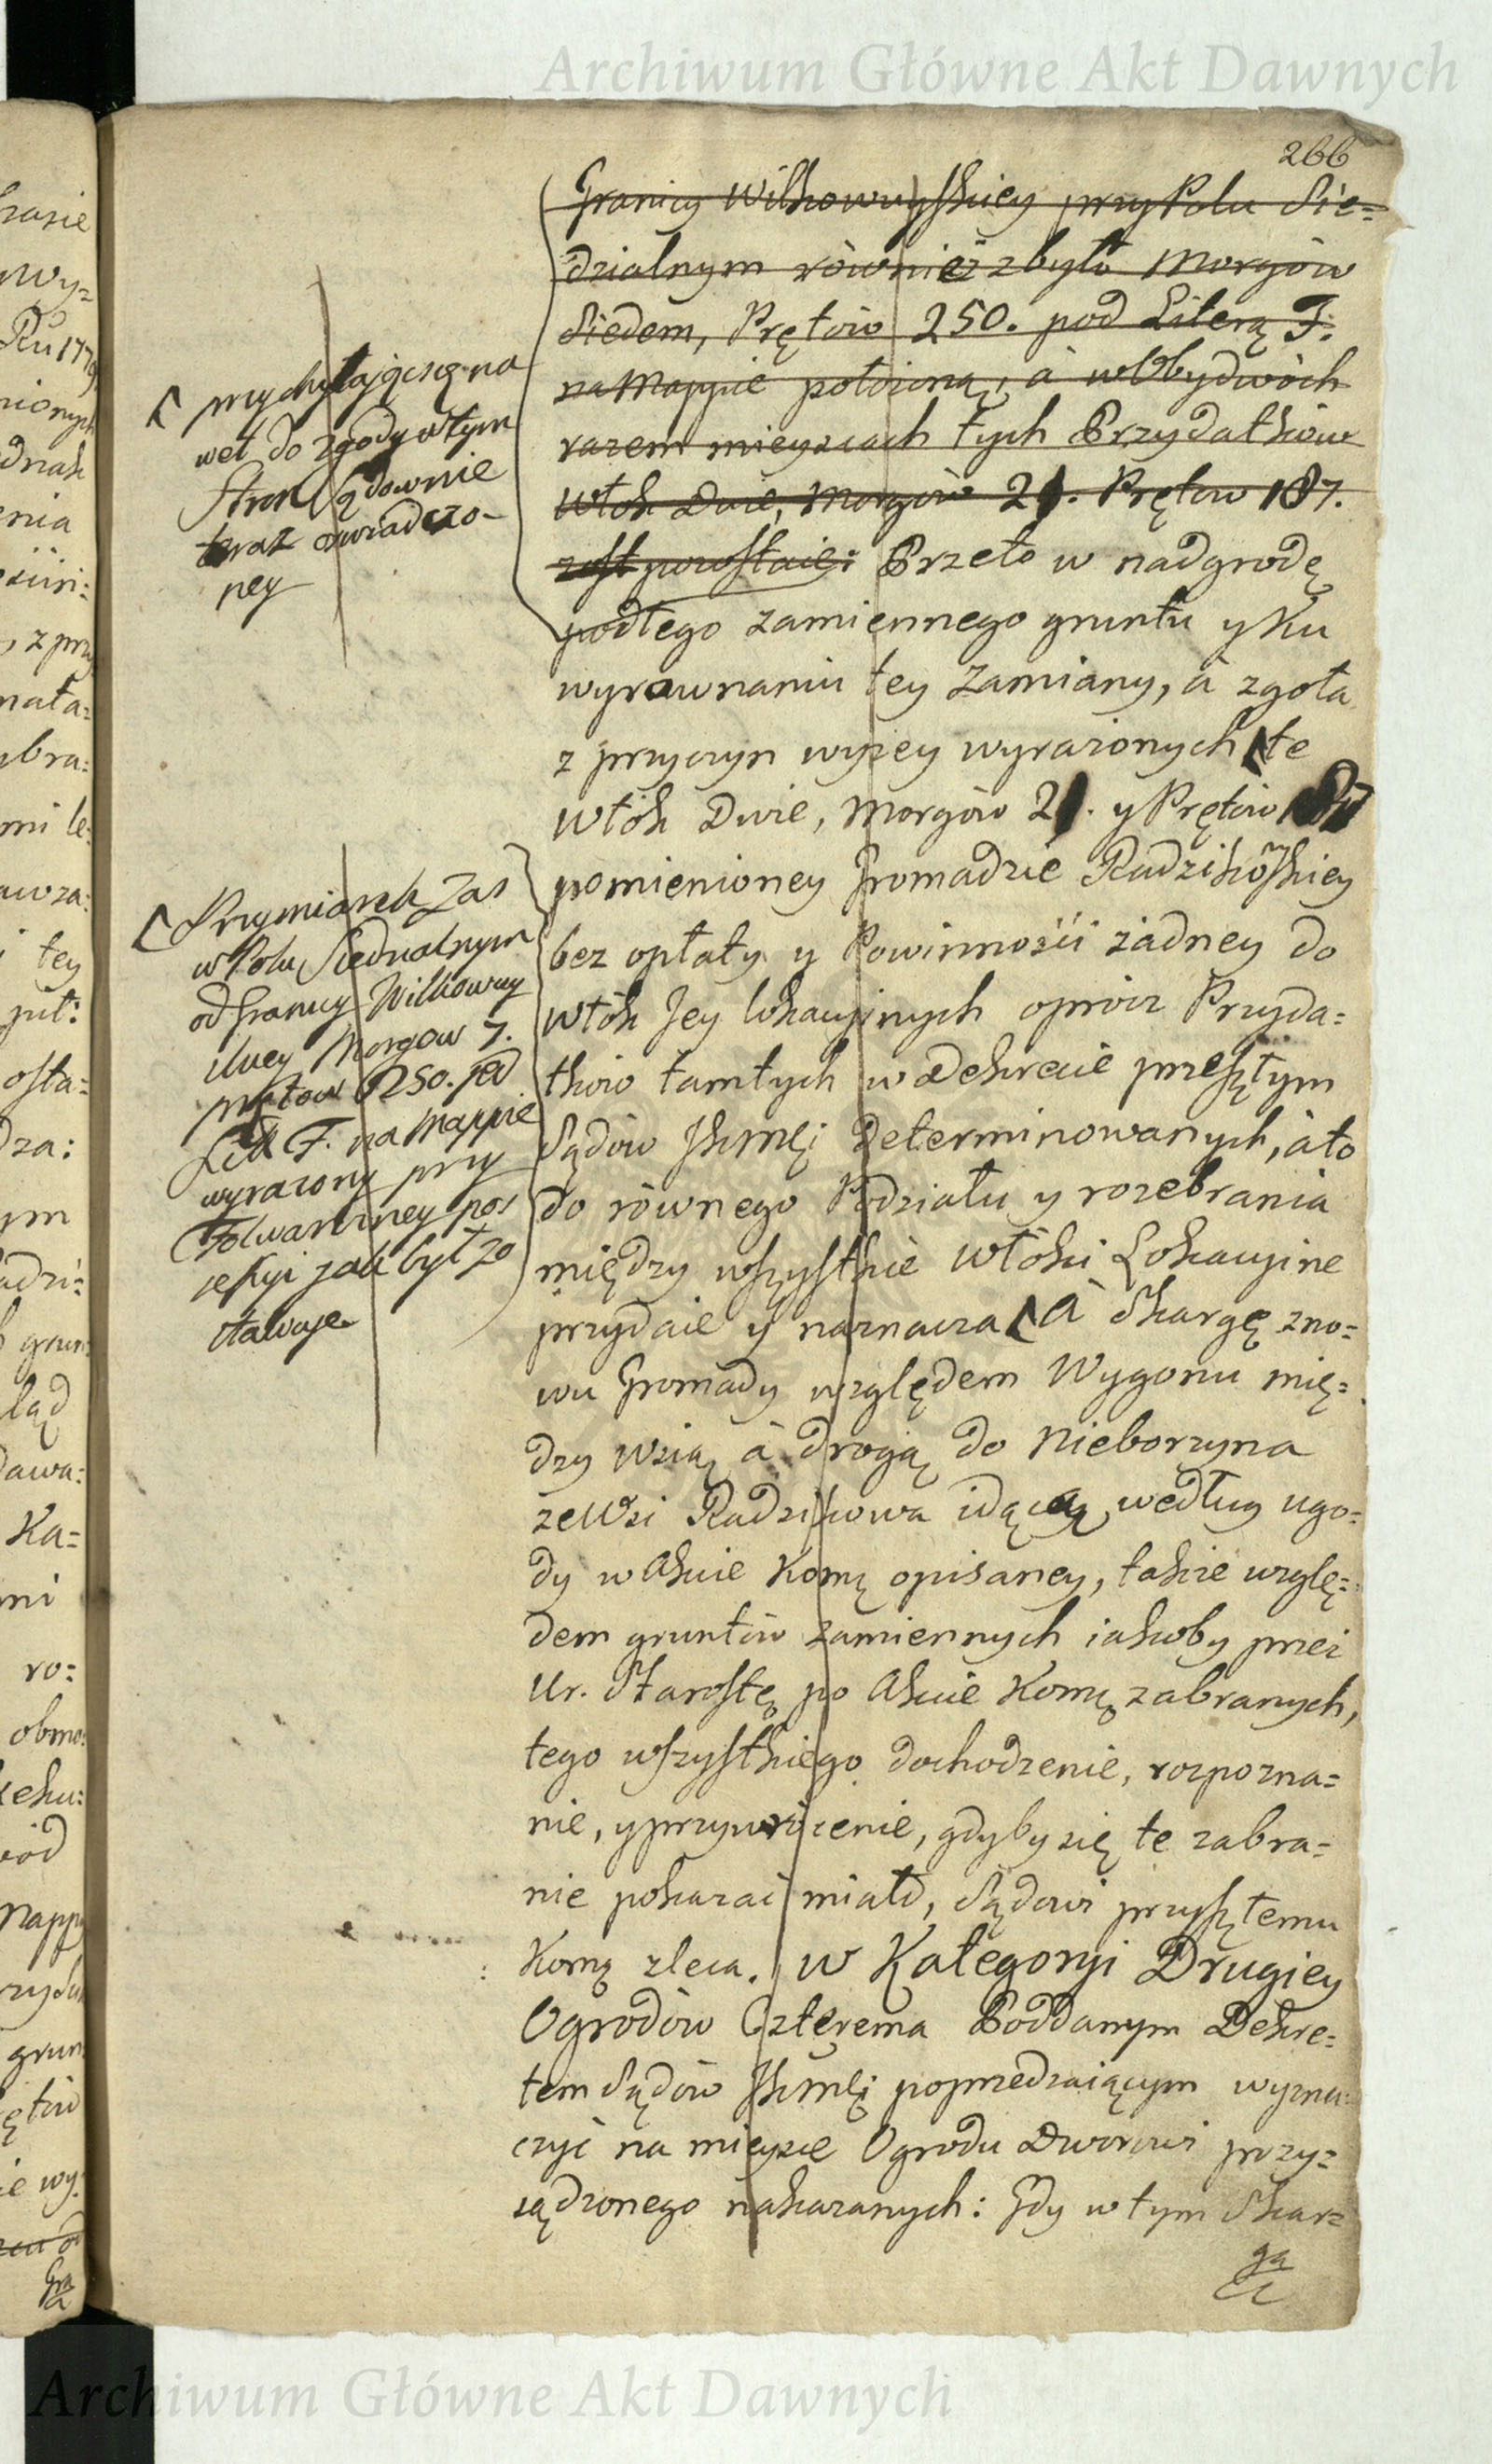 Archiwum Główne Akt Dawnych
266
Granicy Wilkowuyskiey przy Polu Sie=
dzialnym również zbyło Morgów
Siedem, Prętów 250. pod Literą F.
na Mappie położoną, à w Obydwóch
razem mieyscach tych Przydatków
Włók Dwie, Morgów 21. Prętow 187.
Przeto w nadgrodę
podłego zamiennego gruntu y Ku
wyrównaniu tey Zamiany, à zgoła
z przyczyn wyżey wyrażonych te
Włók Dwie, Morgów 21. y Prętów
pomienioney Gromadzie Radzikowskiey
bez opłaty y Powinności żadney do
Włók Jey lokacyinych oprócz Przyda=
tków tamtych w Dekrecie przeszłym
Sądów JKMci Determinowanych, à to
do równego Podziału y rozebrania
między wszystkie Włóki Lokacyine
przydaie y naznacza à Skargę zno=
wu Gromady względem Wygonu mię=
dzy Wsią à drogą do Nieborzyna
ze Wsi Radzikowa idącą według ugo=
dy w Akcie Komą opisaney, także wzglę=
dem gruntów zamiennych iakoby przez
Ur. Starostę po Akcie Komą zabranych,
tego wszystkiego dochodzenie, rozpozna=
nie, y przywrócenie, gdyby się te zabra=
nie pokazać miało, Sądowi przyszłemu
Komą zleca. w Kategoryi Drugiey
Ogrodów Czterema Poddanym Dekre=
tem Sądów JKMci poprzedzaiącym wyzna=
czyć na mieysce Ogrodu Dworowi przy=
sądzonego nakazanych: Gdy w tym Skar=
ga
przychylając się na
wet do zgody w tym
Stron Sądownie
teraz oswiadczo-
ney
Przymiarek zas
w Polu Siedzialnym
od Granicy Wilkowuy
skiey Morgow 7.
prętow 250. pod
Lit. F. na Mappie
wyrazony przy
Folwarczney pos
sessyi jak był zo
stawuje
Archiwum Główne Akt Dawnych